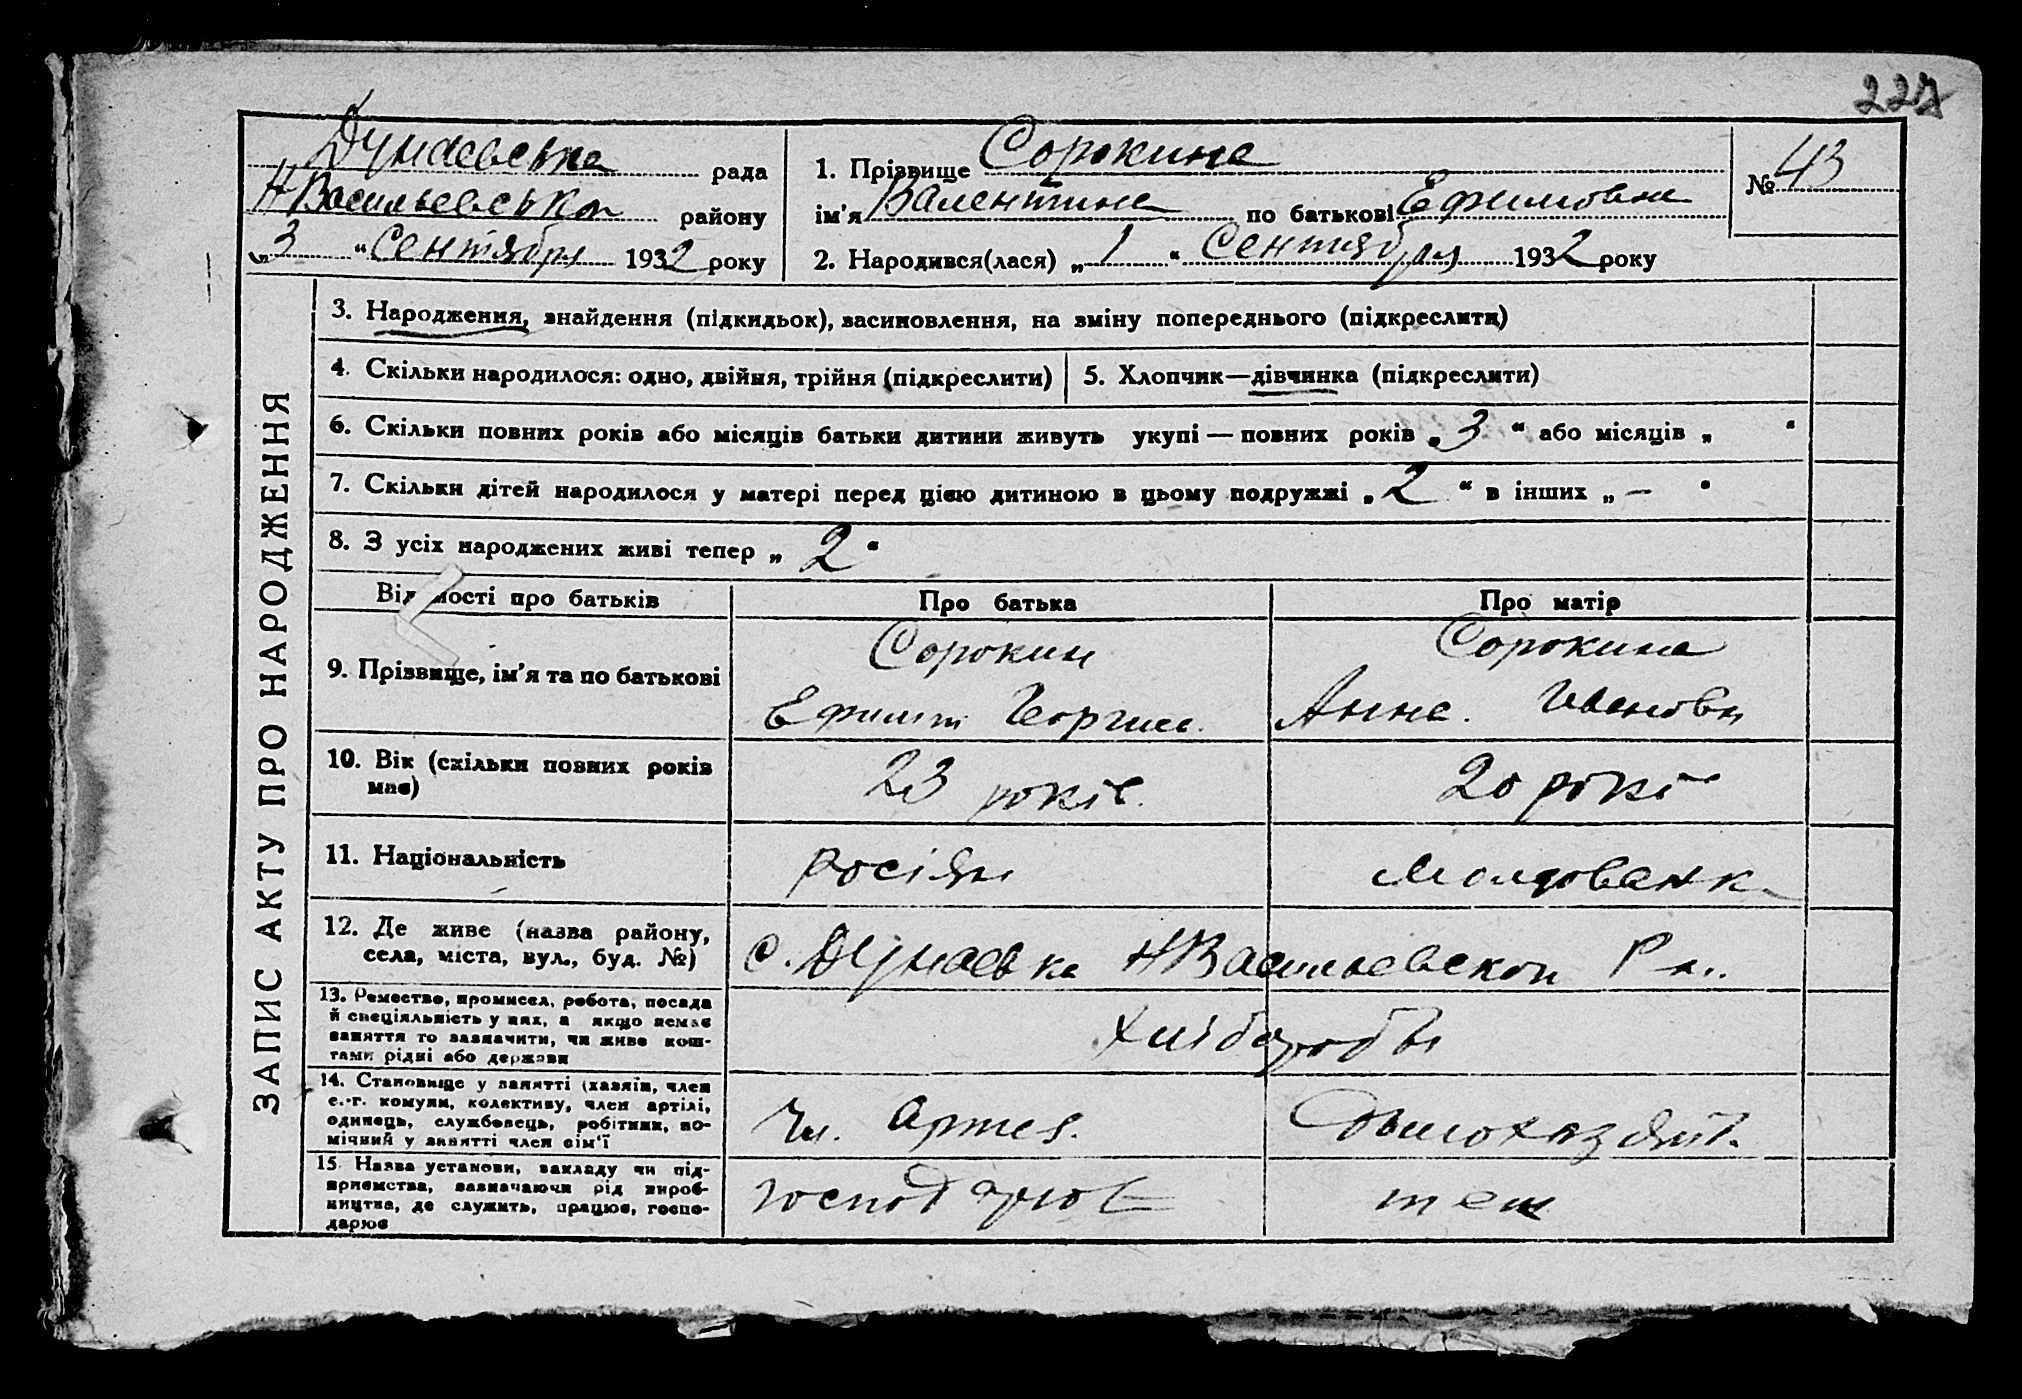 227
Дунаевська рада
Н Васильевськой району
„3“ Сентября 1932 року
1. Прізвище Сорокина
ім'я Валентина по батькові Ефимовна
2. Народився(лася) „1“ Сентября 1932 року
№ 43
ЗАПИС АКТУ ПРО НАРОДЖЕННЯ
3. Народження, знайдення (підкидьок), васиновлення, на зміну попереднього (підкреслити)
4. Скільки народилося: одно, двійня, трійня (підкреслити)
5. Хлопчик—дівчинка (підкреслити)
6. Скільки повних років або місяців батьки дитини живуть укупі — повних років „3“ або місяців „ “
7. Скільки дітей народилося у матері перед цією дитиною в цьому подружжі „2“ в інших „—“
8. З усіх народжених живі тепер „2“
Відомості про батьків
Про батька
Про матір
9. Прізвище, ім'я та по батькові
Сорокин
Ефим Георгие.
Сорокина
Анна. Ивановн
10. Вік (скільки повних років
має)
23 років.
20 років
11. Національність
росіян
молдованк
12. Де живе (назва району,
села, міста, вул., буд. №)
с. Дунаевка Н Васильевской Р-н.
13. Ремество, промисел, робота, посада
й спеціяльність у них, а якщо немає
заняття то зазначити, чи живе кош-
тами рідні або держави
хлібороби
14. Становище у занятті (хазяїн, член
с.-г. комуни, колективу, член артілі,
одинець, службовець, робітник, по-
мічний у занятті член сім'ї
Чл. Артел.
Домохазяйт.
15. Назва установи, закладу чи під-
приємства, зазначаючи рід вироб-
ництва, де служить, працює, госпо-
дарює
господарює
теж